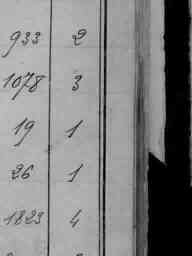 933 2
1078 3
19 1
26 1
1823 4